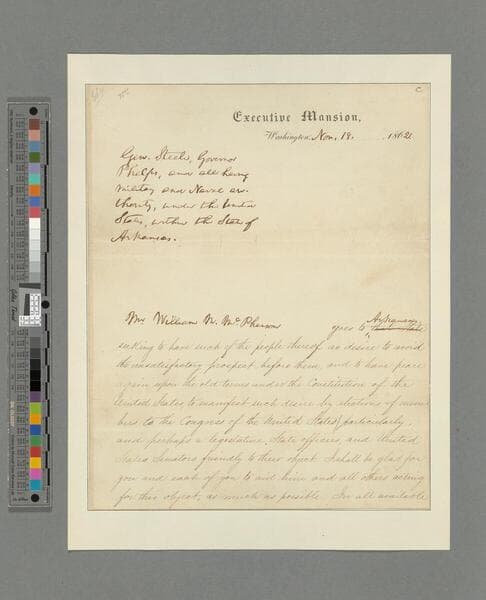 Executive Mansion,
Washington, Nov. 18. , 1862
Gen. Steele, Governor
Phelps, and all having
military and Naval au-
thority, under the United
States, within the State of
Arkansas.
Mr William M. McPherson goes to Arkansas,
seeking to have such of the people thereof as desire to avoid
the unsatisfactory prospect before them, and to have peace
again upon the old terms under the Constitution of the
United States to manifest such desire by elections of mem
bers to the Congress of the United States particularly,
and perhaps a legislature, State officers, and United
States Senators friendly to their object. I shall be glad for
you and each of you to aid him and all others acting
for this object, as much as possible. In all available